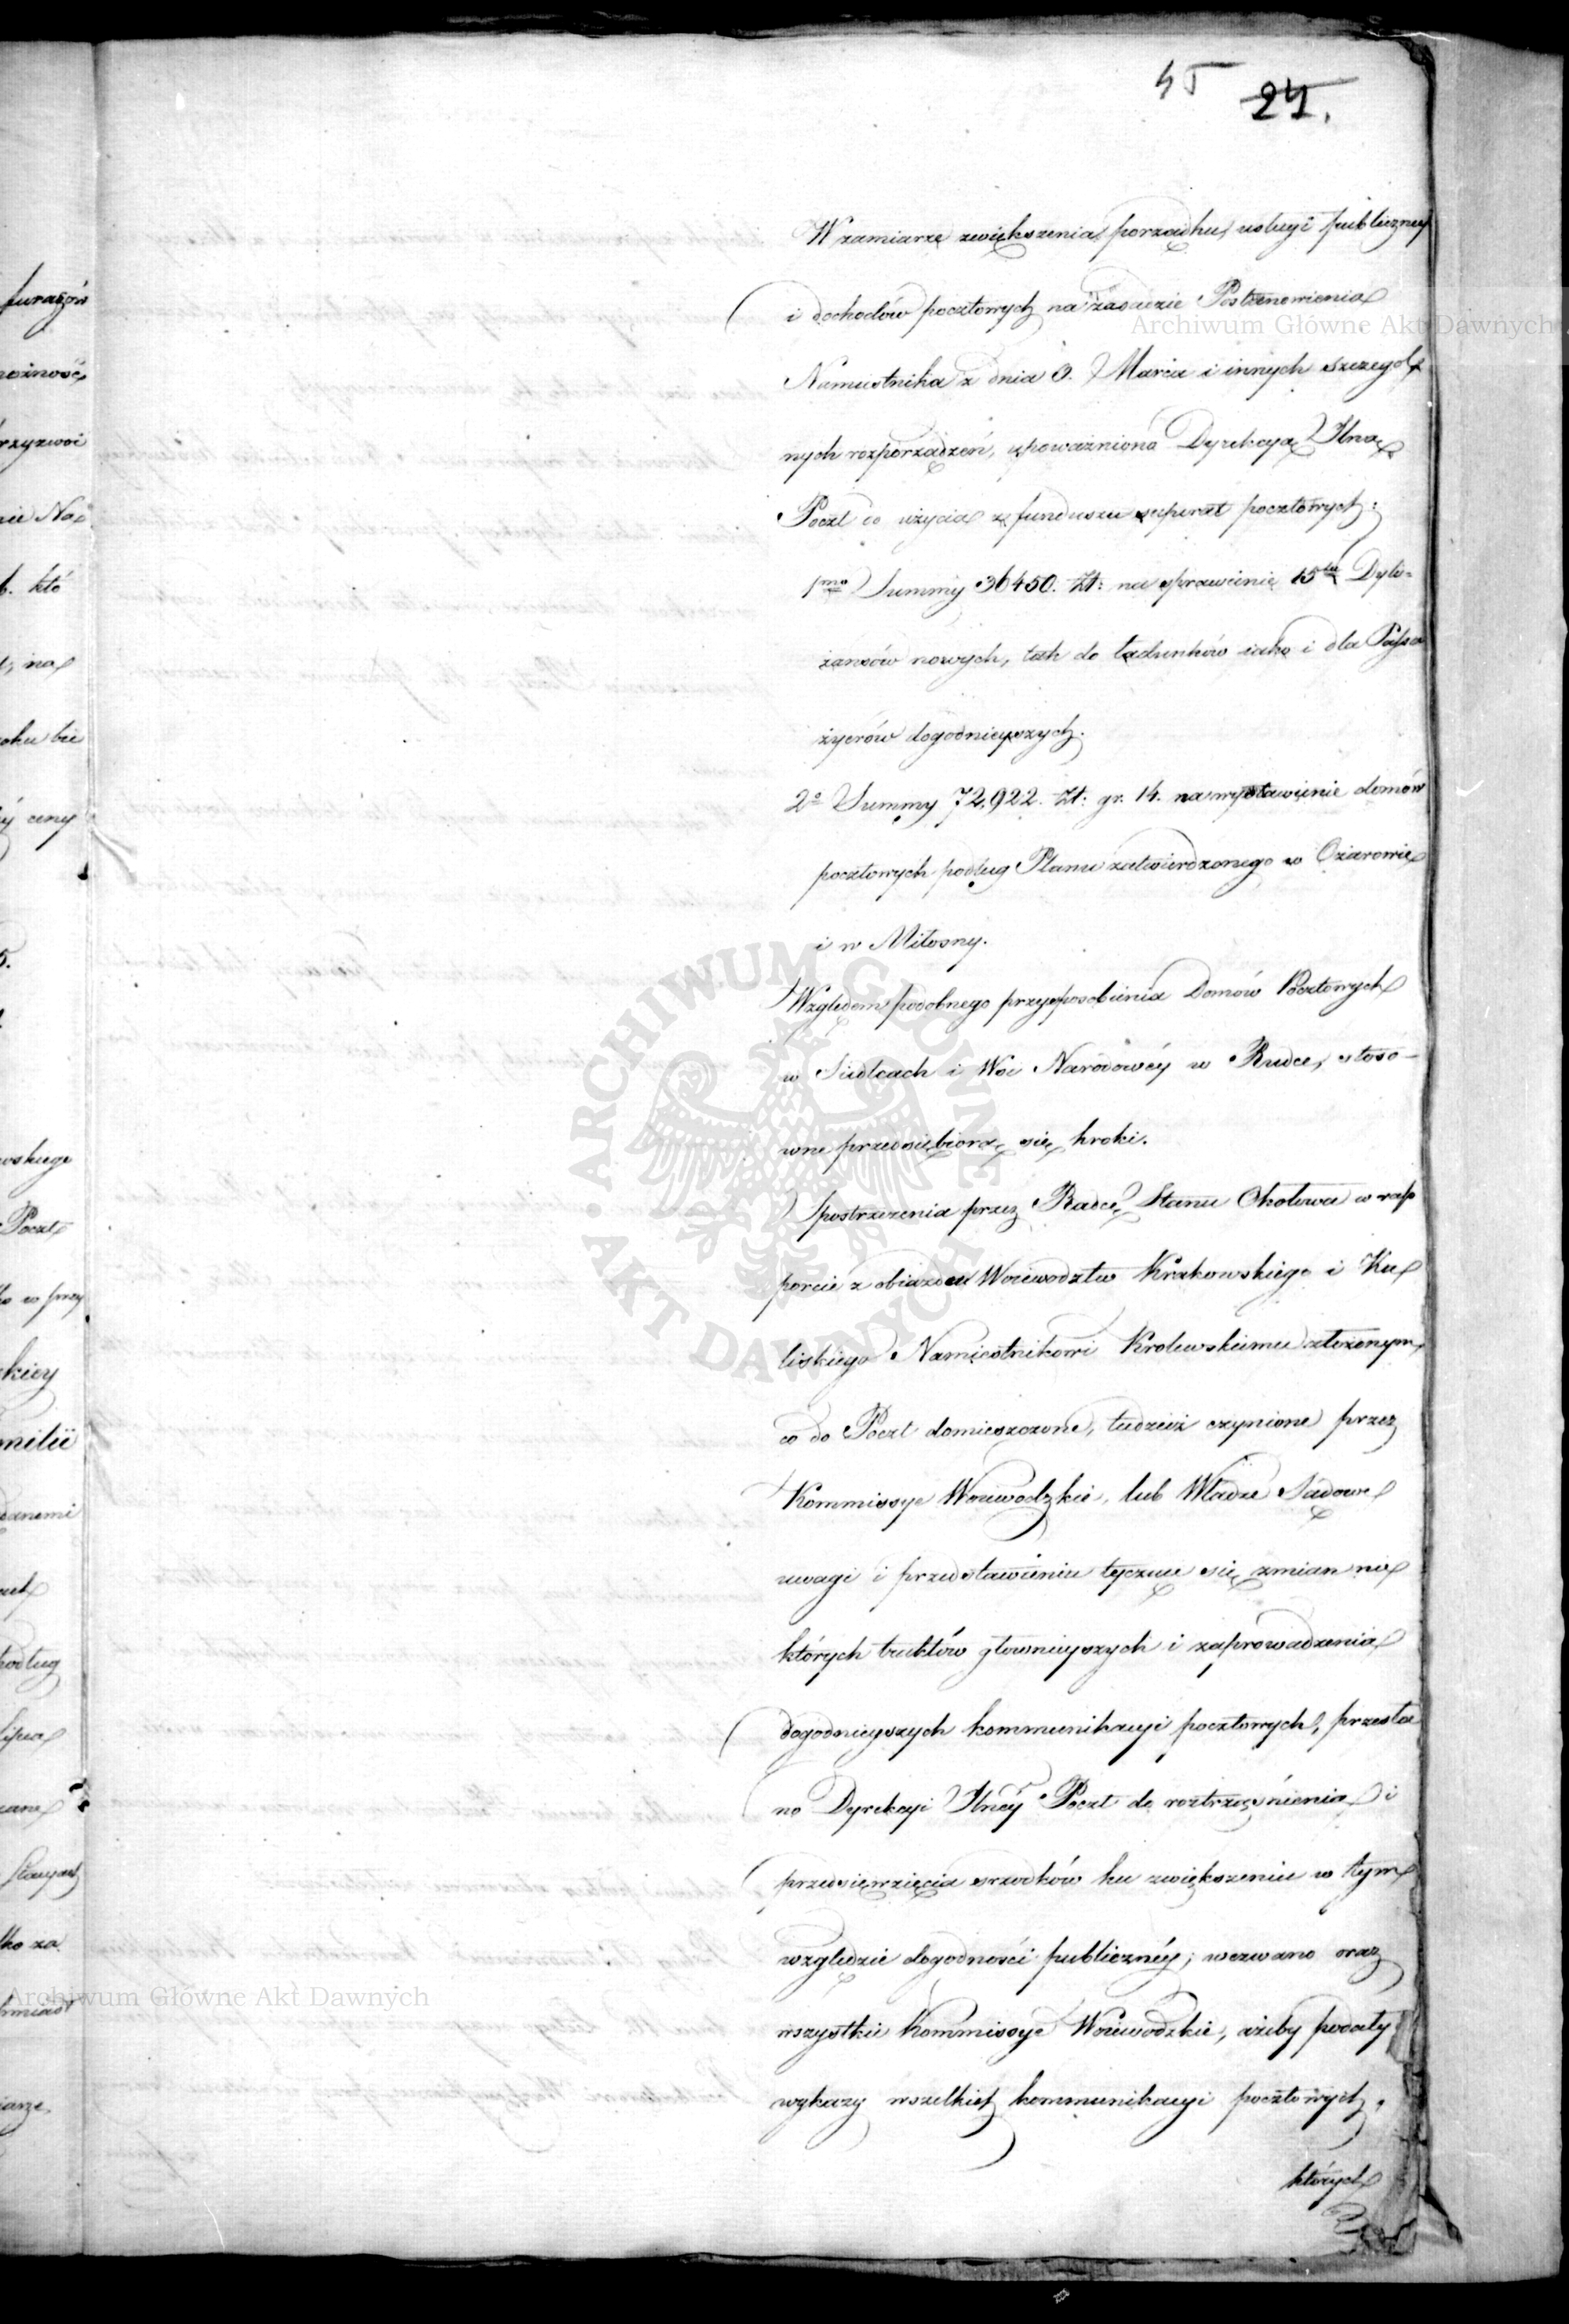 45 24.
W zamiarze zwiększenia porządku, usługi publiczney
i dochodów pocztowych na zasadzie Postanowienia
Archiwum Główne Akt Dawnych
Namiestnika z dnia 3. Marca i innych szczegol
nych rozporządzeń, upoważniona Dyrekcya Jlna
Poczt do użycia z funduszu seperat pocztowych:
1mo Summy 36450. Zł: na sprawienie 15tu Dyli=
żansów nowych, tak do ładunków iako i dla Passa
żyerów dogodnieyszych.
2o Summy 72,922. Zł: gr. 14. na wystawienie domów
pocztowych podług Planu zatwierdzonego w Ożarowie
i w Miłosny.
Względem podobnego przysposobienia Domów Pocztowych
w Siedlcach i Wsi Narodowéy w Rudce, stoso-
wne przedsiębiorą się kroki.
Spostrzeżenia przez Radcę Stanu Okołowa w rap
porcie z obiazdu Woiewodztw Krakowskiego i Ka
liskiego Namiestnikowi Krolewskiemu złożonym,
co do Poczt domieszczone, tudzież czynione przez
Kommissye Woiewodzkie, lub Władze Sądowe
uwagi i przedstawienia tyczące się zmian nie
których traktów głownieyszych i zaprowadzenia
dogodnieyszych kommunikacyi pocztowych, przesła
no Dyrekcyi Jlnéy Poczt do roztrząśnienia i
przedsięwzięcia srzodków ku zwiększeniu w tym
względzie dogodności publicznéy; wezwano oraz
wszystkie Kommissye Woiewodzkie, ażeby podały
wykazy wszelkich kommunikacyi pocztowych,
których
ARCHIWUM GŁÓWNE AKT DAWNYCH
Archiwum Główne Akt Dawnych